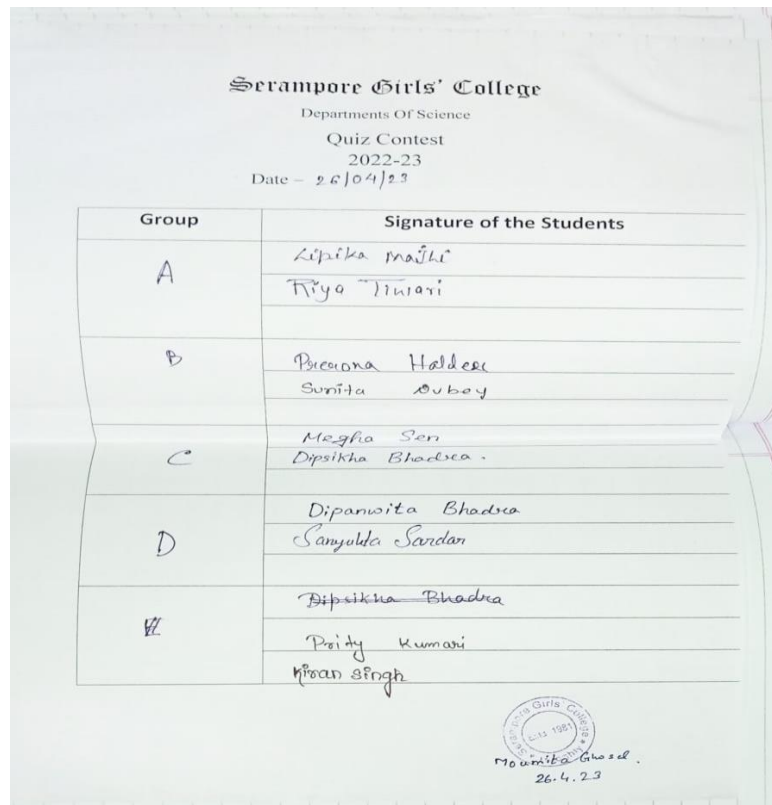 Serampore Girls' College
Departments Of Science
Quiz Contest
2022-23
Date – 26/04/23
Group Signature of the Students
A
Lipika Majhi
Riya Tiwari
B
Prerona Halder
Sunita Dubey
Megha Sen
C
Dipsikha Bhadra.
Dipanwita Bhadra
D
Sanyukta Sardar
Dipsikha Bhadra
Prity Kumari
Kiran Singh
Serampore Girls' College
Estd. 1981
Moumita Ghosal.
26.4.23